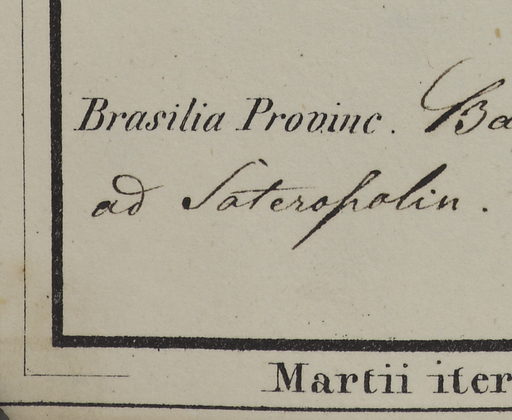 Brasilia Provinc. Ba
ad Soteropolin.
Martii iter